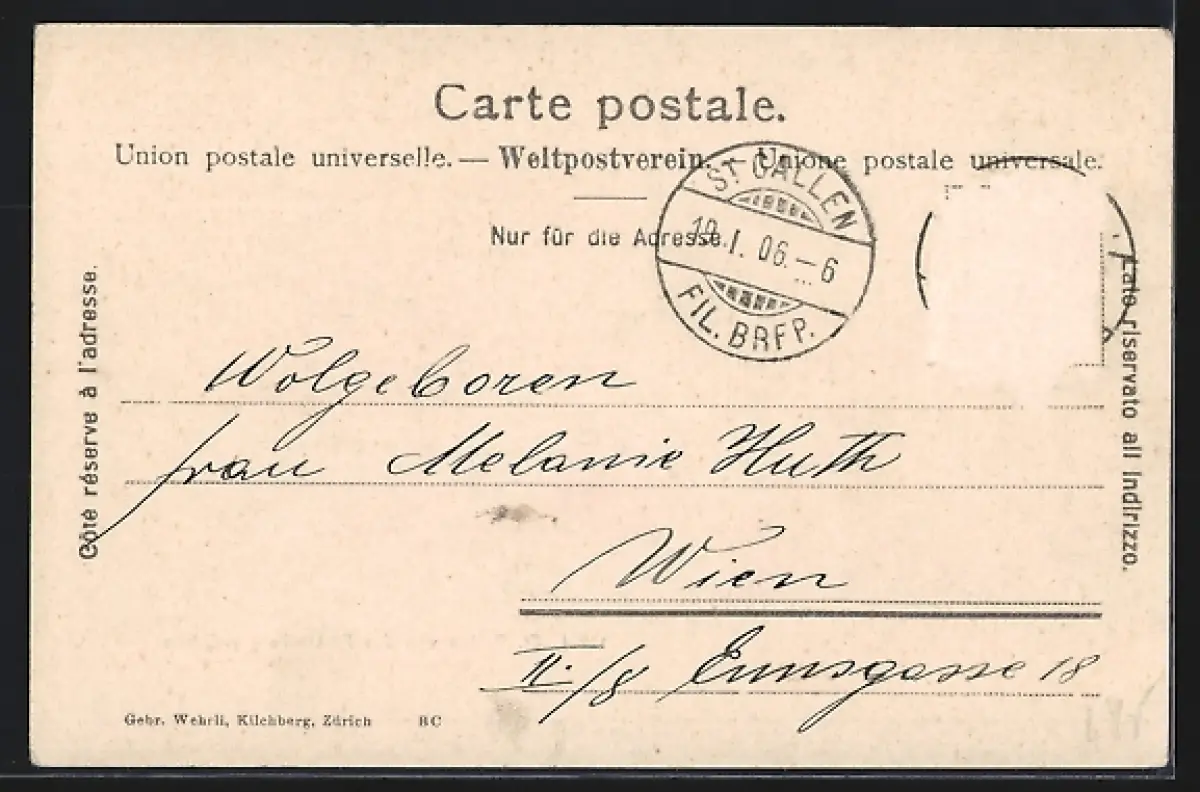 Carte postale.
Union postale universelle. — Weltpostverein. — Unione postale universale.
Nur für die Adresse.
ST. GALLEN
I. 06. – 6
FIL. BRFP.
Côté réservé à l'adresse.
Lato riservato all indirizzo.
Wolgeboren
frau Melanie Huth
Wien
II./8 Ennsgasse 18
Gebr. Wehrli, Kilchberg, Zürich BC